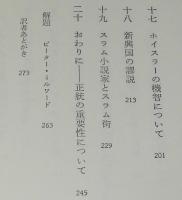 十七 ホイスラーの機智について 201
十八 新興国の謬説 213
十九 スラム小説家とスラム街 229
二十 おわりに——正統の重要性について 245
解題 ピーター・ミルワード 263
訳者あとがき 273